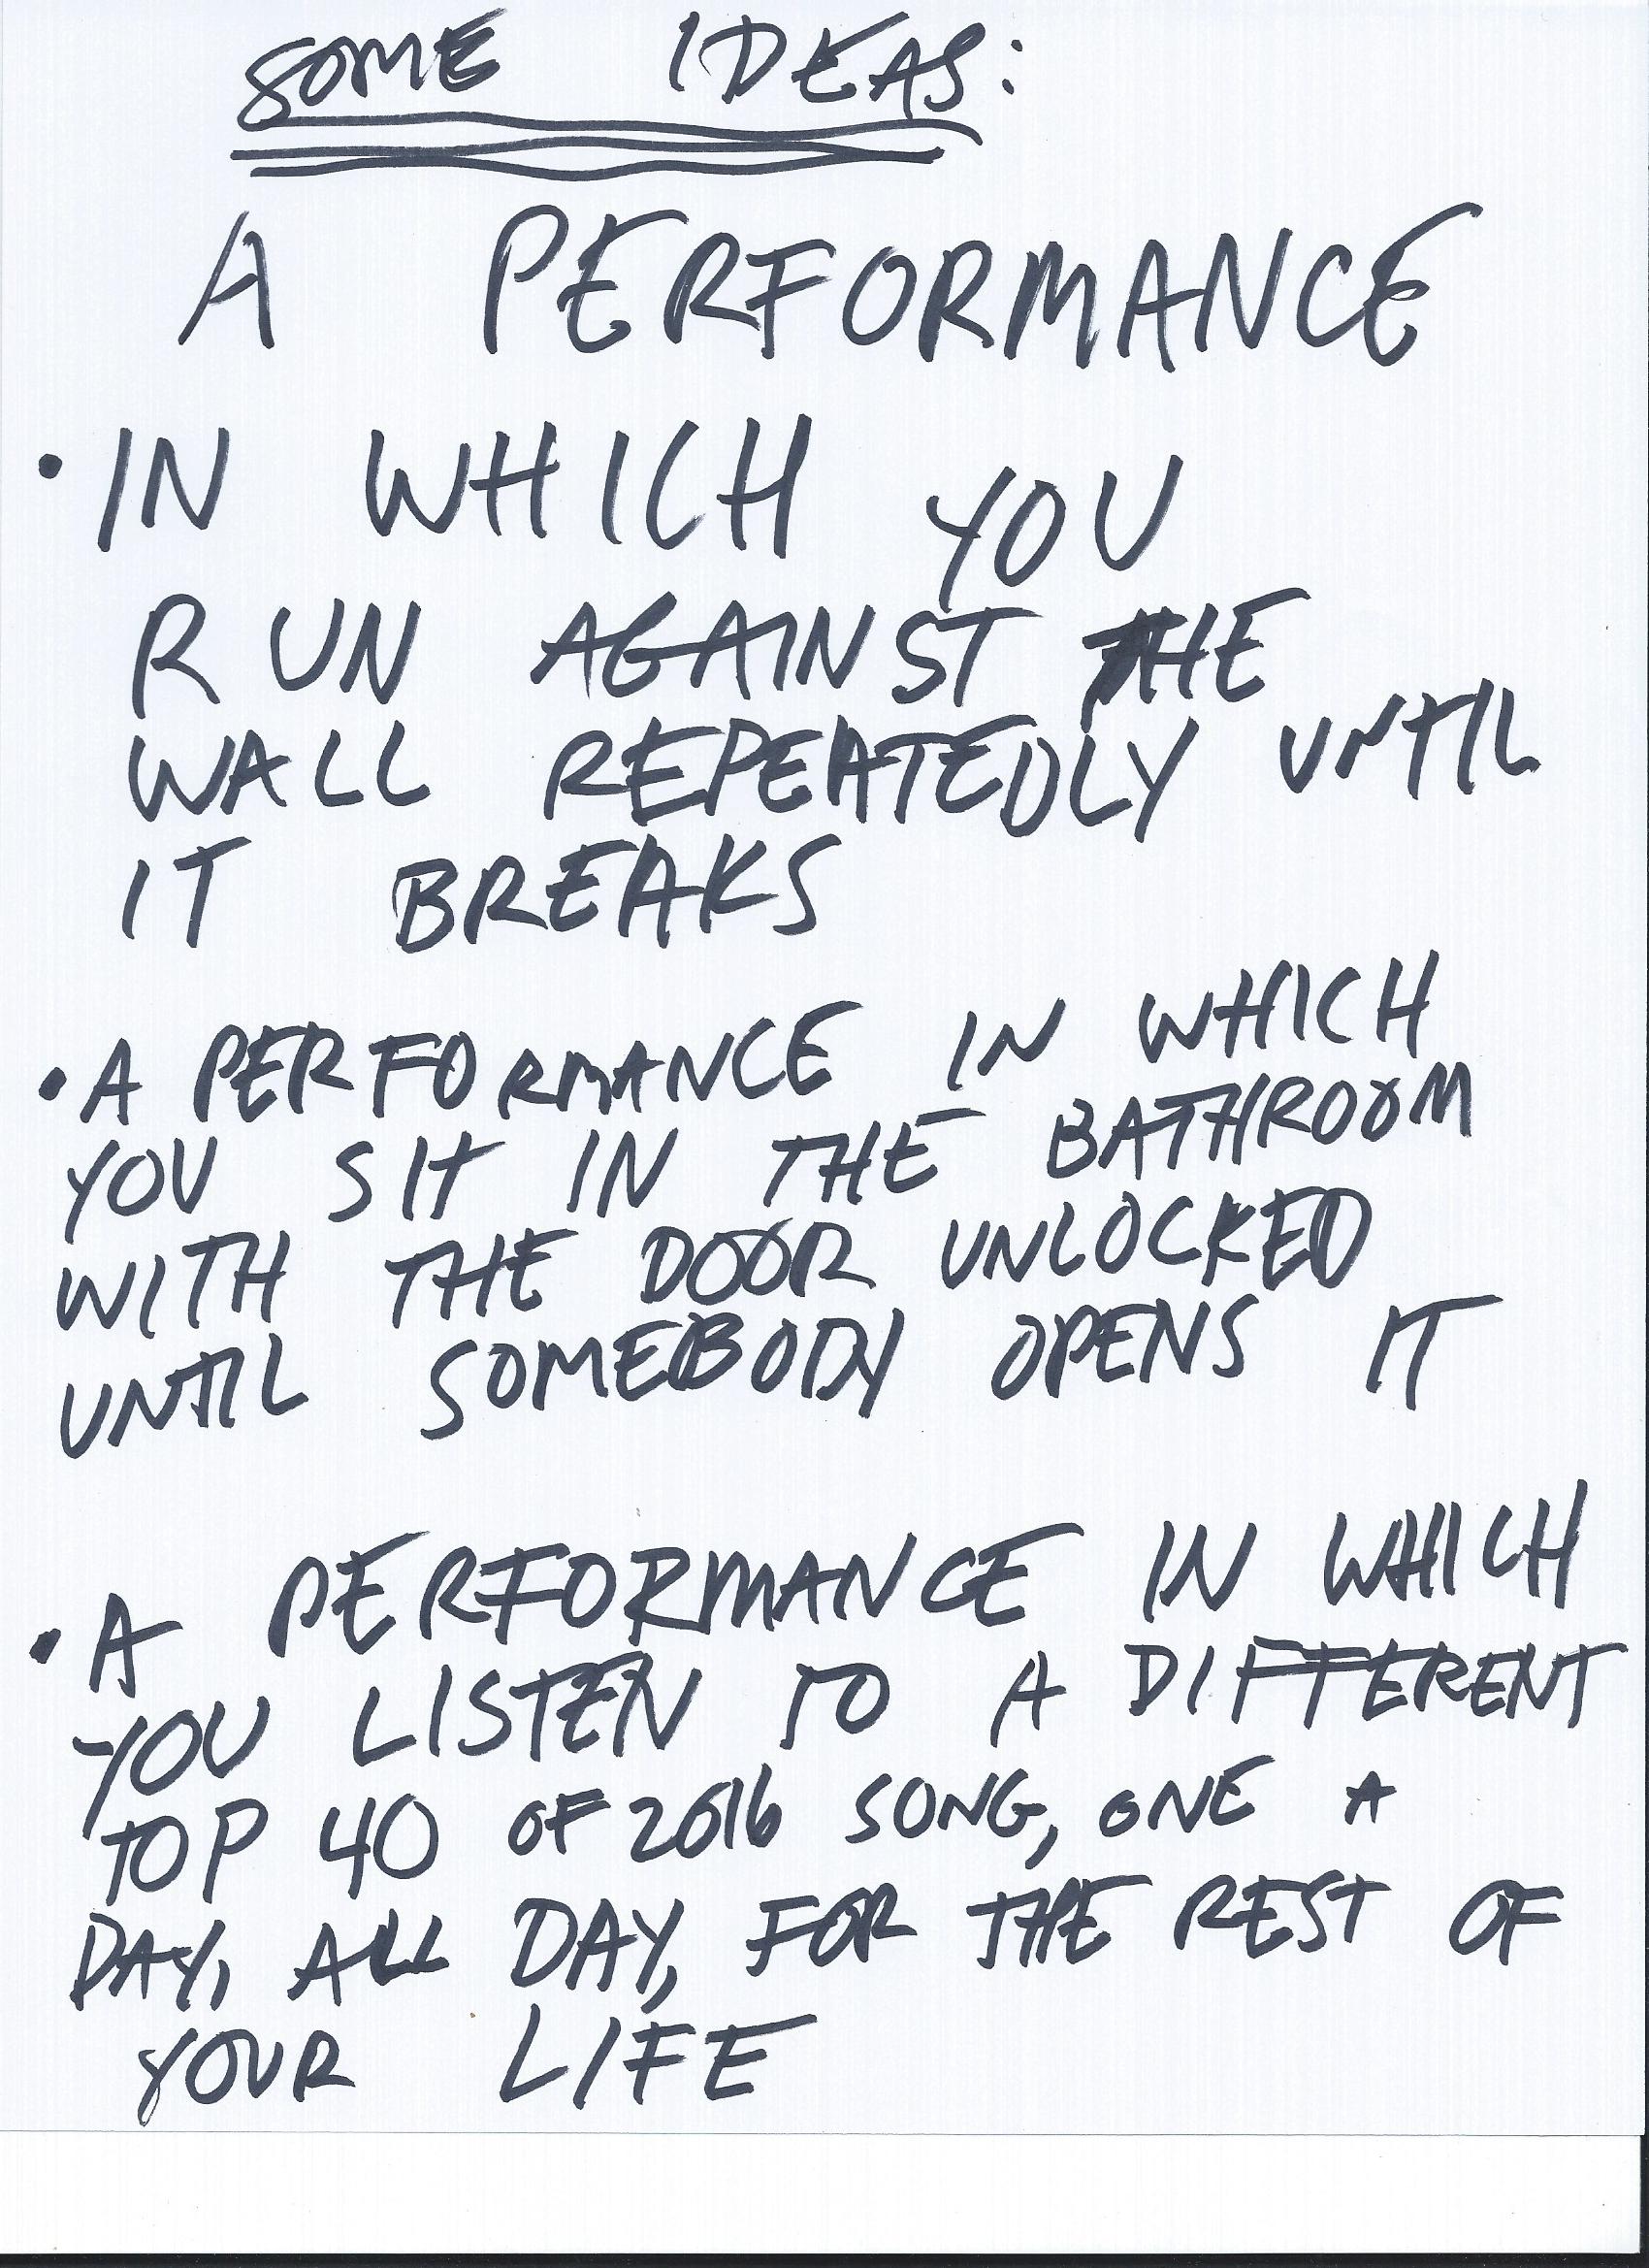 SOME IDEAS:
A PERFORMANCE
• IN WHICH YOU
RUN AGAINST THE
WALL REPEATEDLY UNTIL
IT BREAKS
• A PERFORMANCE IN WHICH
YOU SIT IN THE BATHROOM
WITH THE DOOR UNLOCKED
UNTIL SOMEBODY OPENS IT
• A PERFORMANCE IN WHICH
YOU LISTEN TO A DIFFERENT
TOP 40 OF 2016 SONG, ONE A
DAY, ALL DAY, FOR THE REST OF
YOUR LIFE